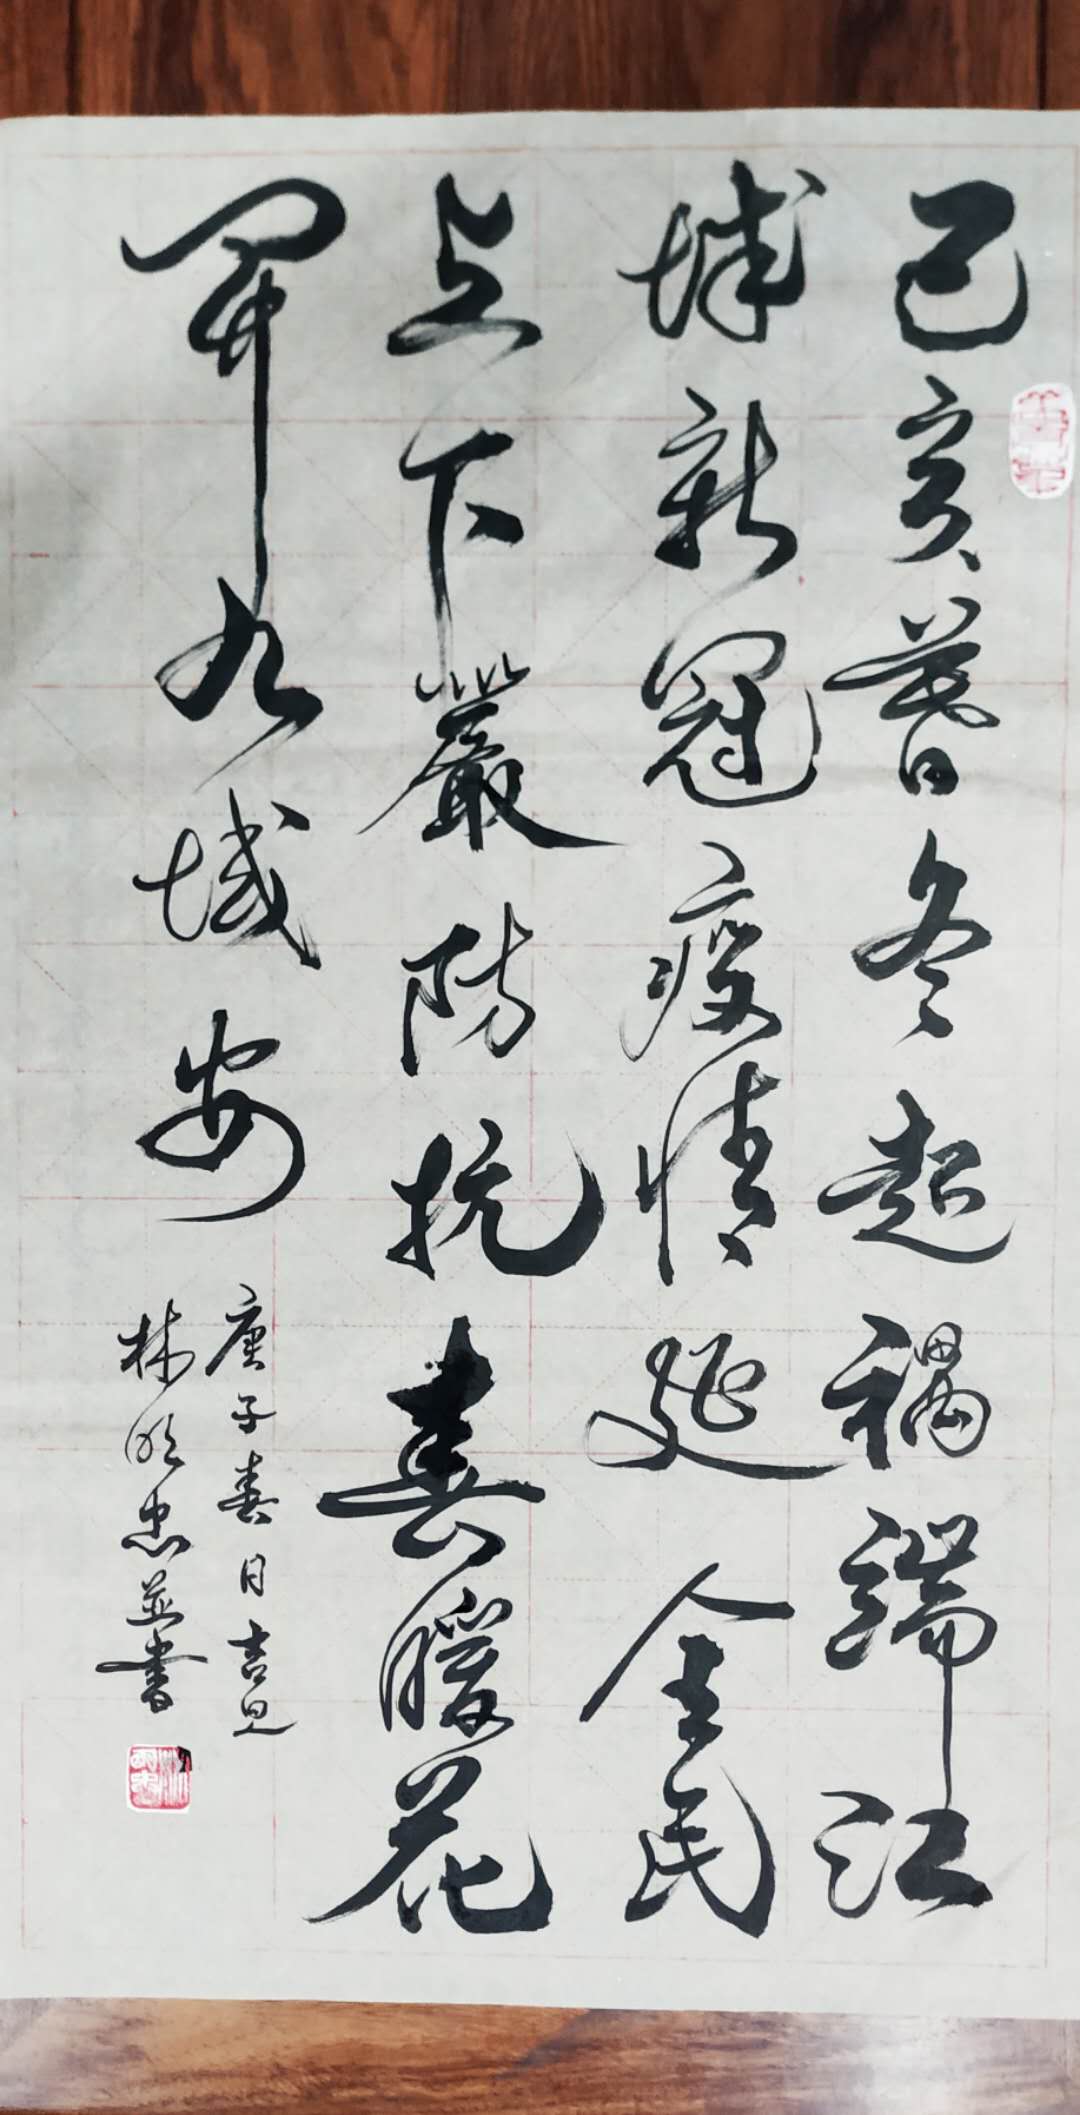 己亥暮冬起禍端江
城新冠疫情延全民
上下嚴防抗春暖花
開九域安
庚子春月吉兄
林明忠並書